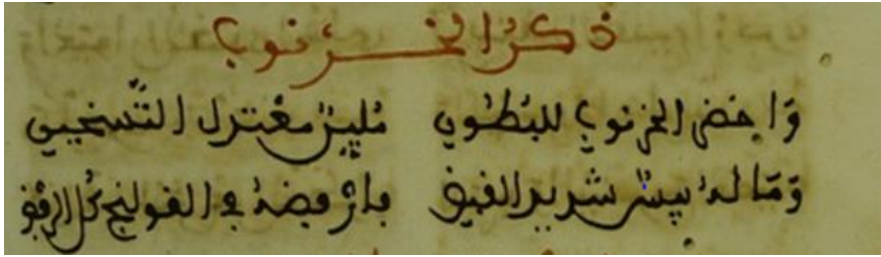 ذكر الخرنوب
وَاخضر الخرنوب للبطون مُلين معتدل التسخين
وَمَا لهُ يبس شديد القبض فارفضهُ في القولنج كل الرفض